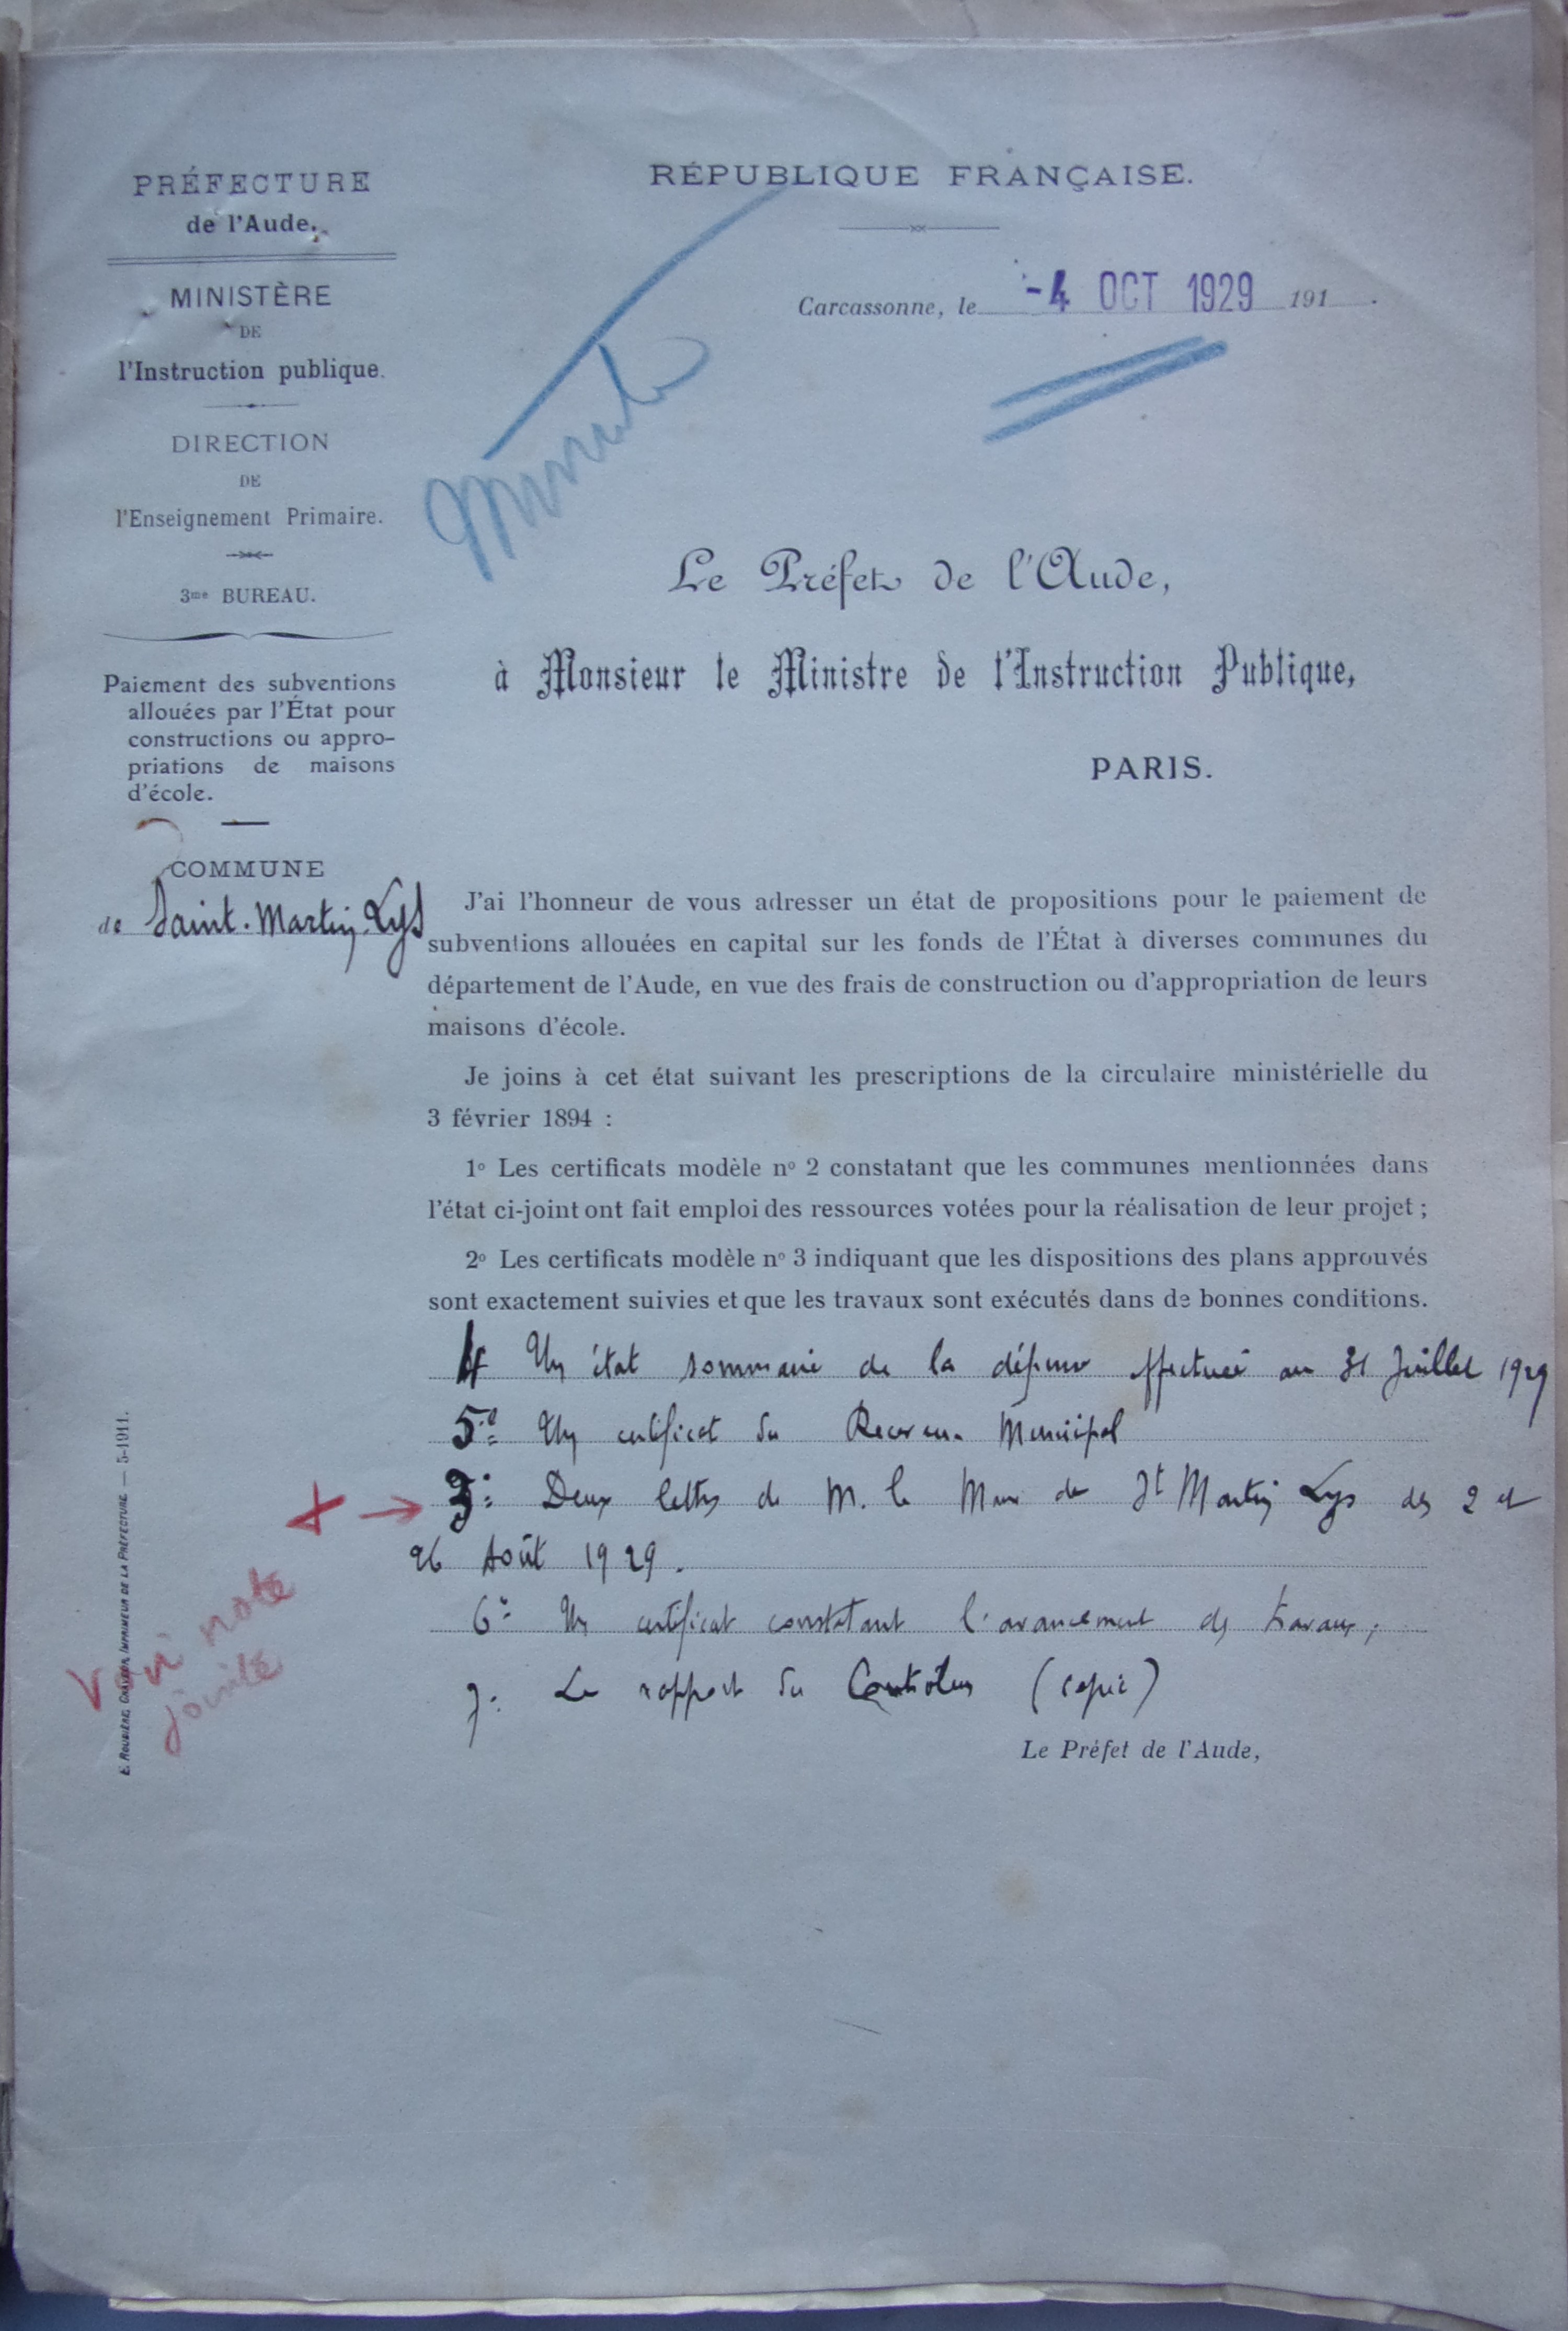 PRÉFECTURE
de l'Aude.
MINISTÈRE
DE
l'Instruction publique.
DIRECTION
DE
l'Enseignement Primaire.
3me BUREAU.
Paiement des subventions
allouées par l'État pour
constructions ou appro-
priations de maisons
d'école.
COMMUNE
de Saint-Martin-Lys
RÉPUBLIQUE FRANÇAISE.
Carcassonne, le -4 OCT 1929 191
Minute
Le Préfet de l'Aude,
à Monsieur le Ministre de l'Instruction Publique,
PARIS.
J'ai l'honneur de vous adresser un état de propositions pour le paiement de
subventions allouées en capital sur les fonds de l'État à diverses communes du
département de l'Aude, en vue des frais de construction ou d'appropriation de leurs
maisons d'école.
Je joins à cet état suivant les prescriptions de la circulaire ministérielle du
3 février 1894 :
1º Les certificats modèle nº 2 constatant que les communes mentionnées dans
l'état ci-joint ont fait emploi des ressources votées pour la réalisation de leur projet ;
2º Les certificats modèle nº 3 indiquant que les dispositions des plans approuvés
sont exactement suivies et que les travaux sont exécutés dans de bonnes conditions.
4 Un état sommaire de la dépense effectuée au 31 Juillet 1929
5º Un certificat du Receveur Municipal
3º Deux lettres de M. le Maire de St Martin Lys des 2 et
26 Août 1929.
6º Un certificat constatant l'avancement des travaux ;
7º Le rapport du Contrôleur (copie)
Le Préfet de l'Aude,
Voir note
jointe
E. ROUDIÈRE, CARCASSONNE, IMPRIMEUR DE LA PRÉFECTURE — 5-1911.